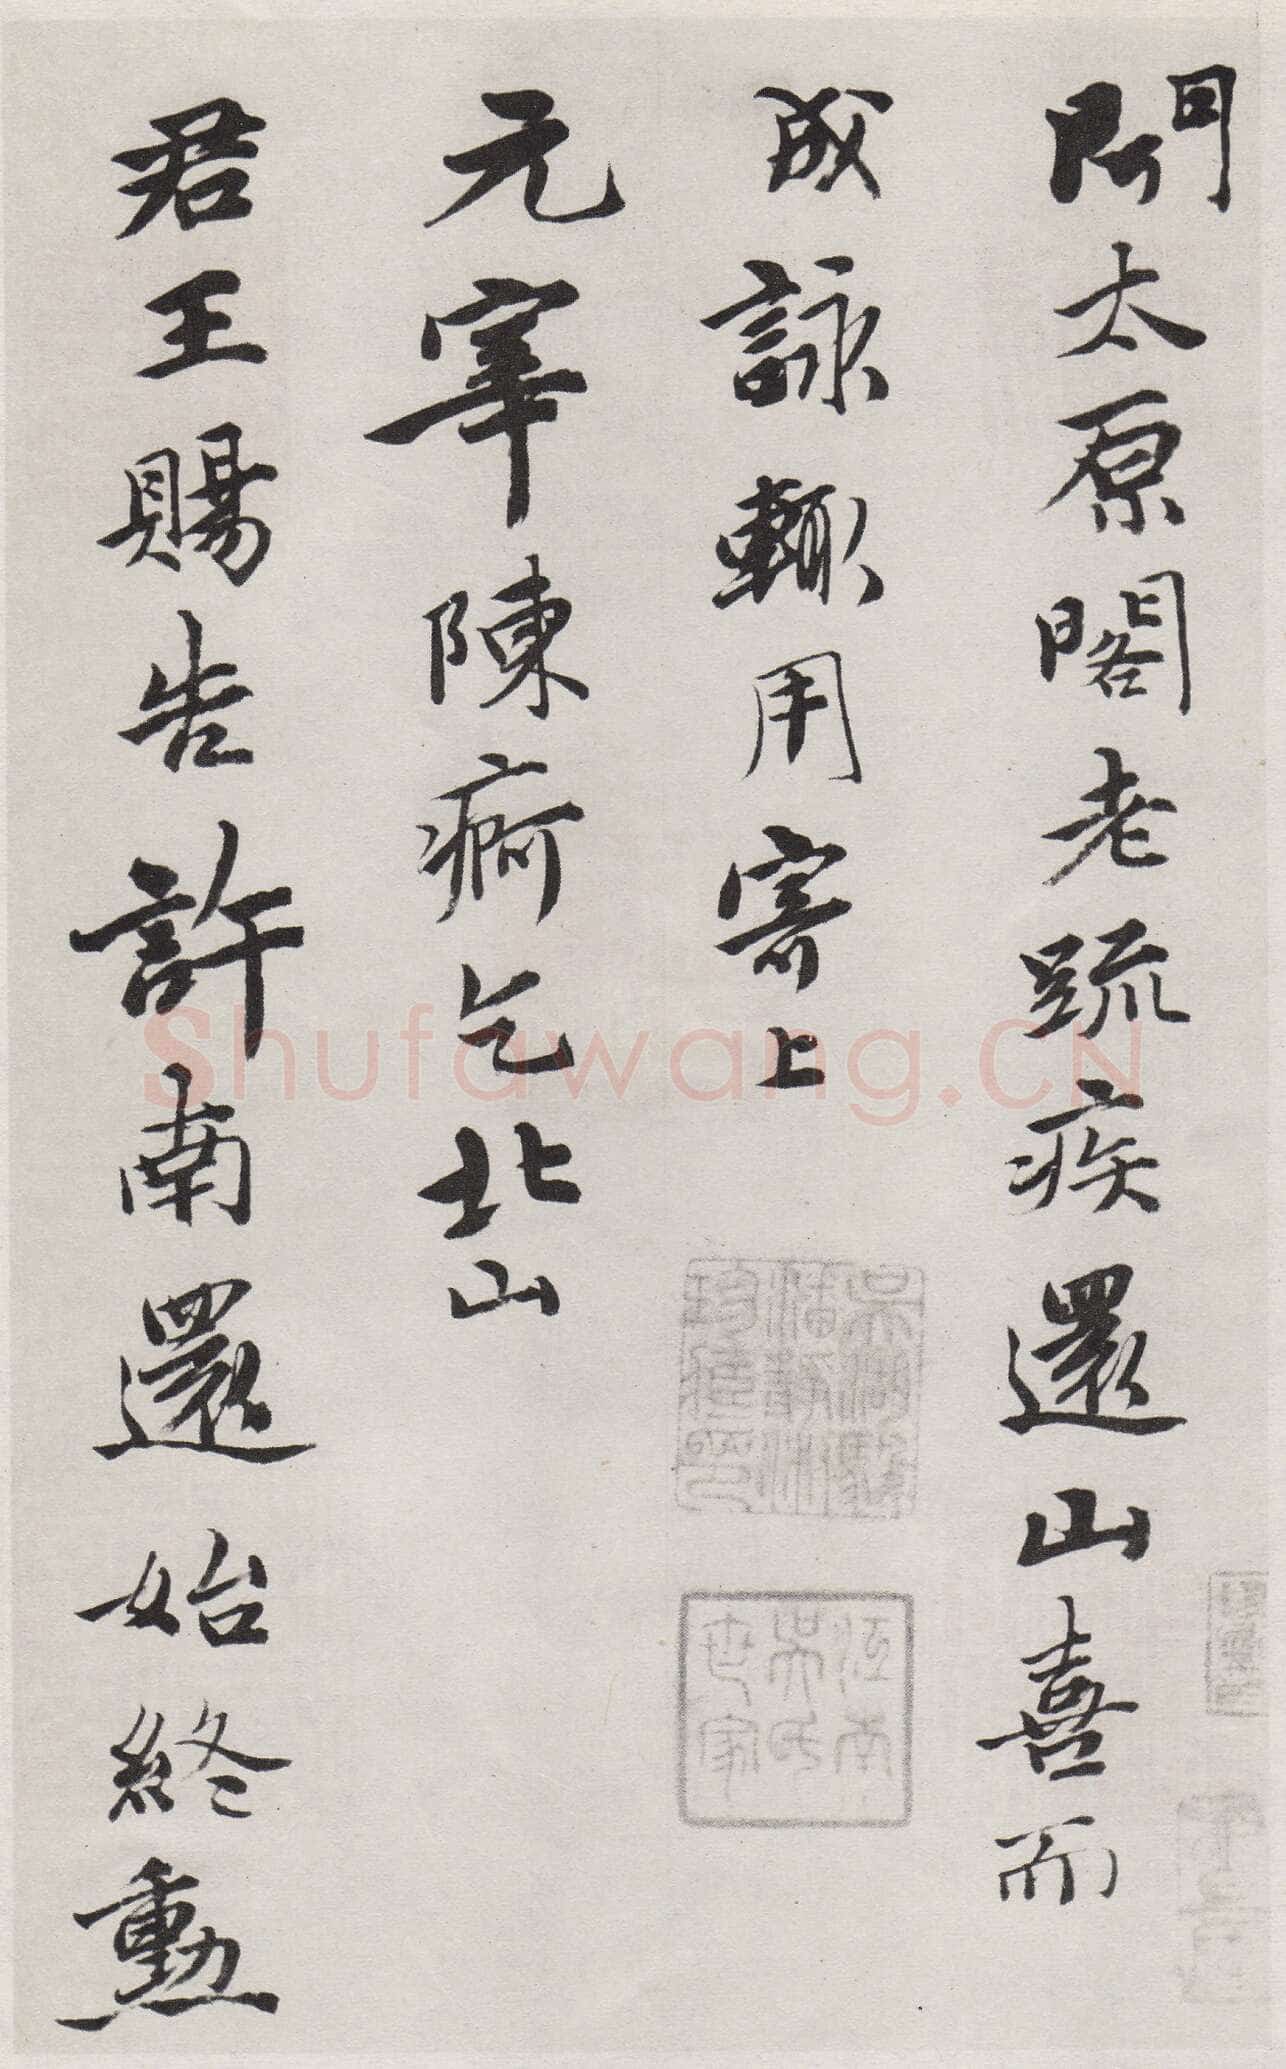 聞太原閣老疏疾還山喜而
成詠輒用寄上
元宰陳痾乞北山
君王賜告許南還始終勳
Shufawang.CN
江南
吳氏
世家